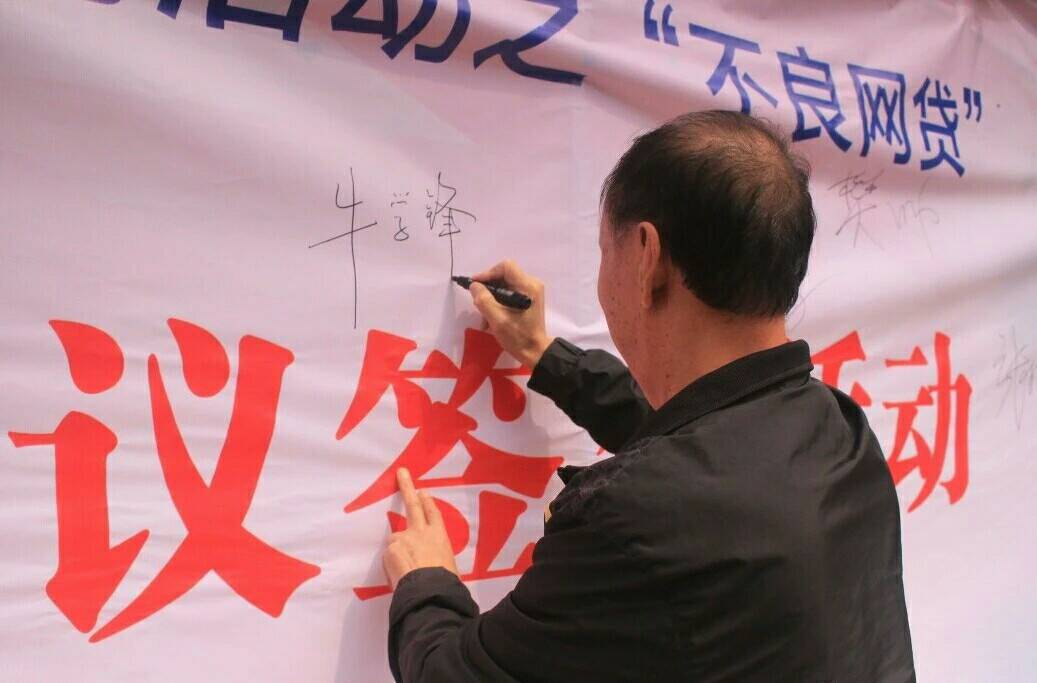 活动之“不良网贷”
牛学锋
樊
议签 活动